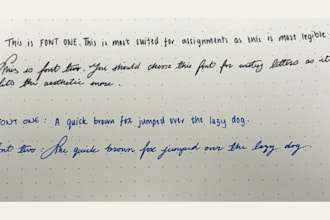 This is FONT ONE. This is most suited for assignments as this is most legible
This is font two. You should choose this font for writing letters as it
fits the aesthetic more.
FONT ONE : A quick brown fox jumped over the lazy dog.
font two : The quick brown fox jumped over the lazy dog.